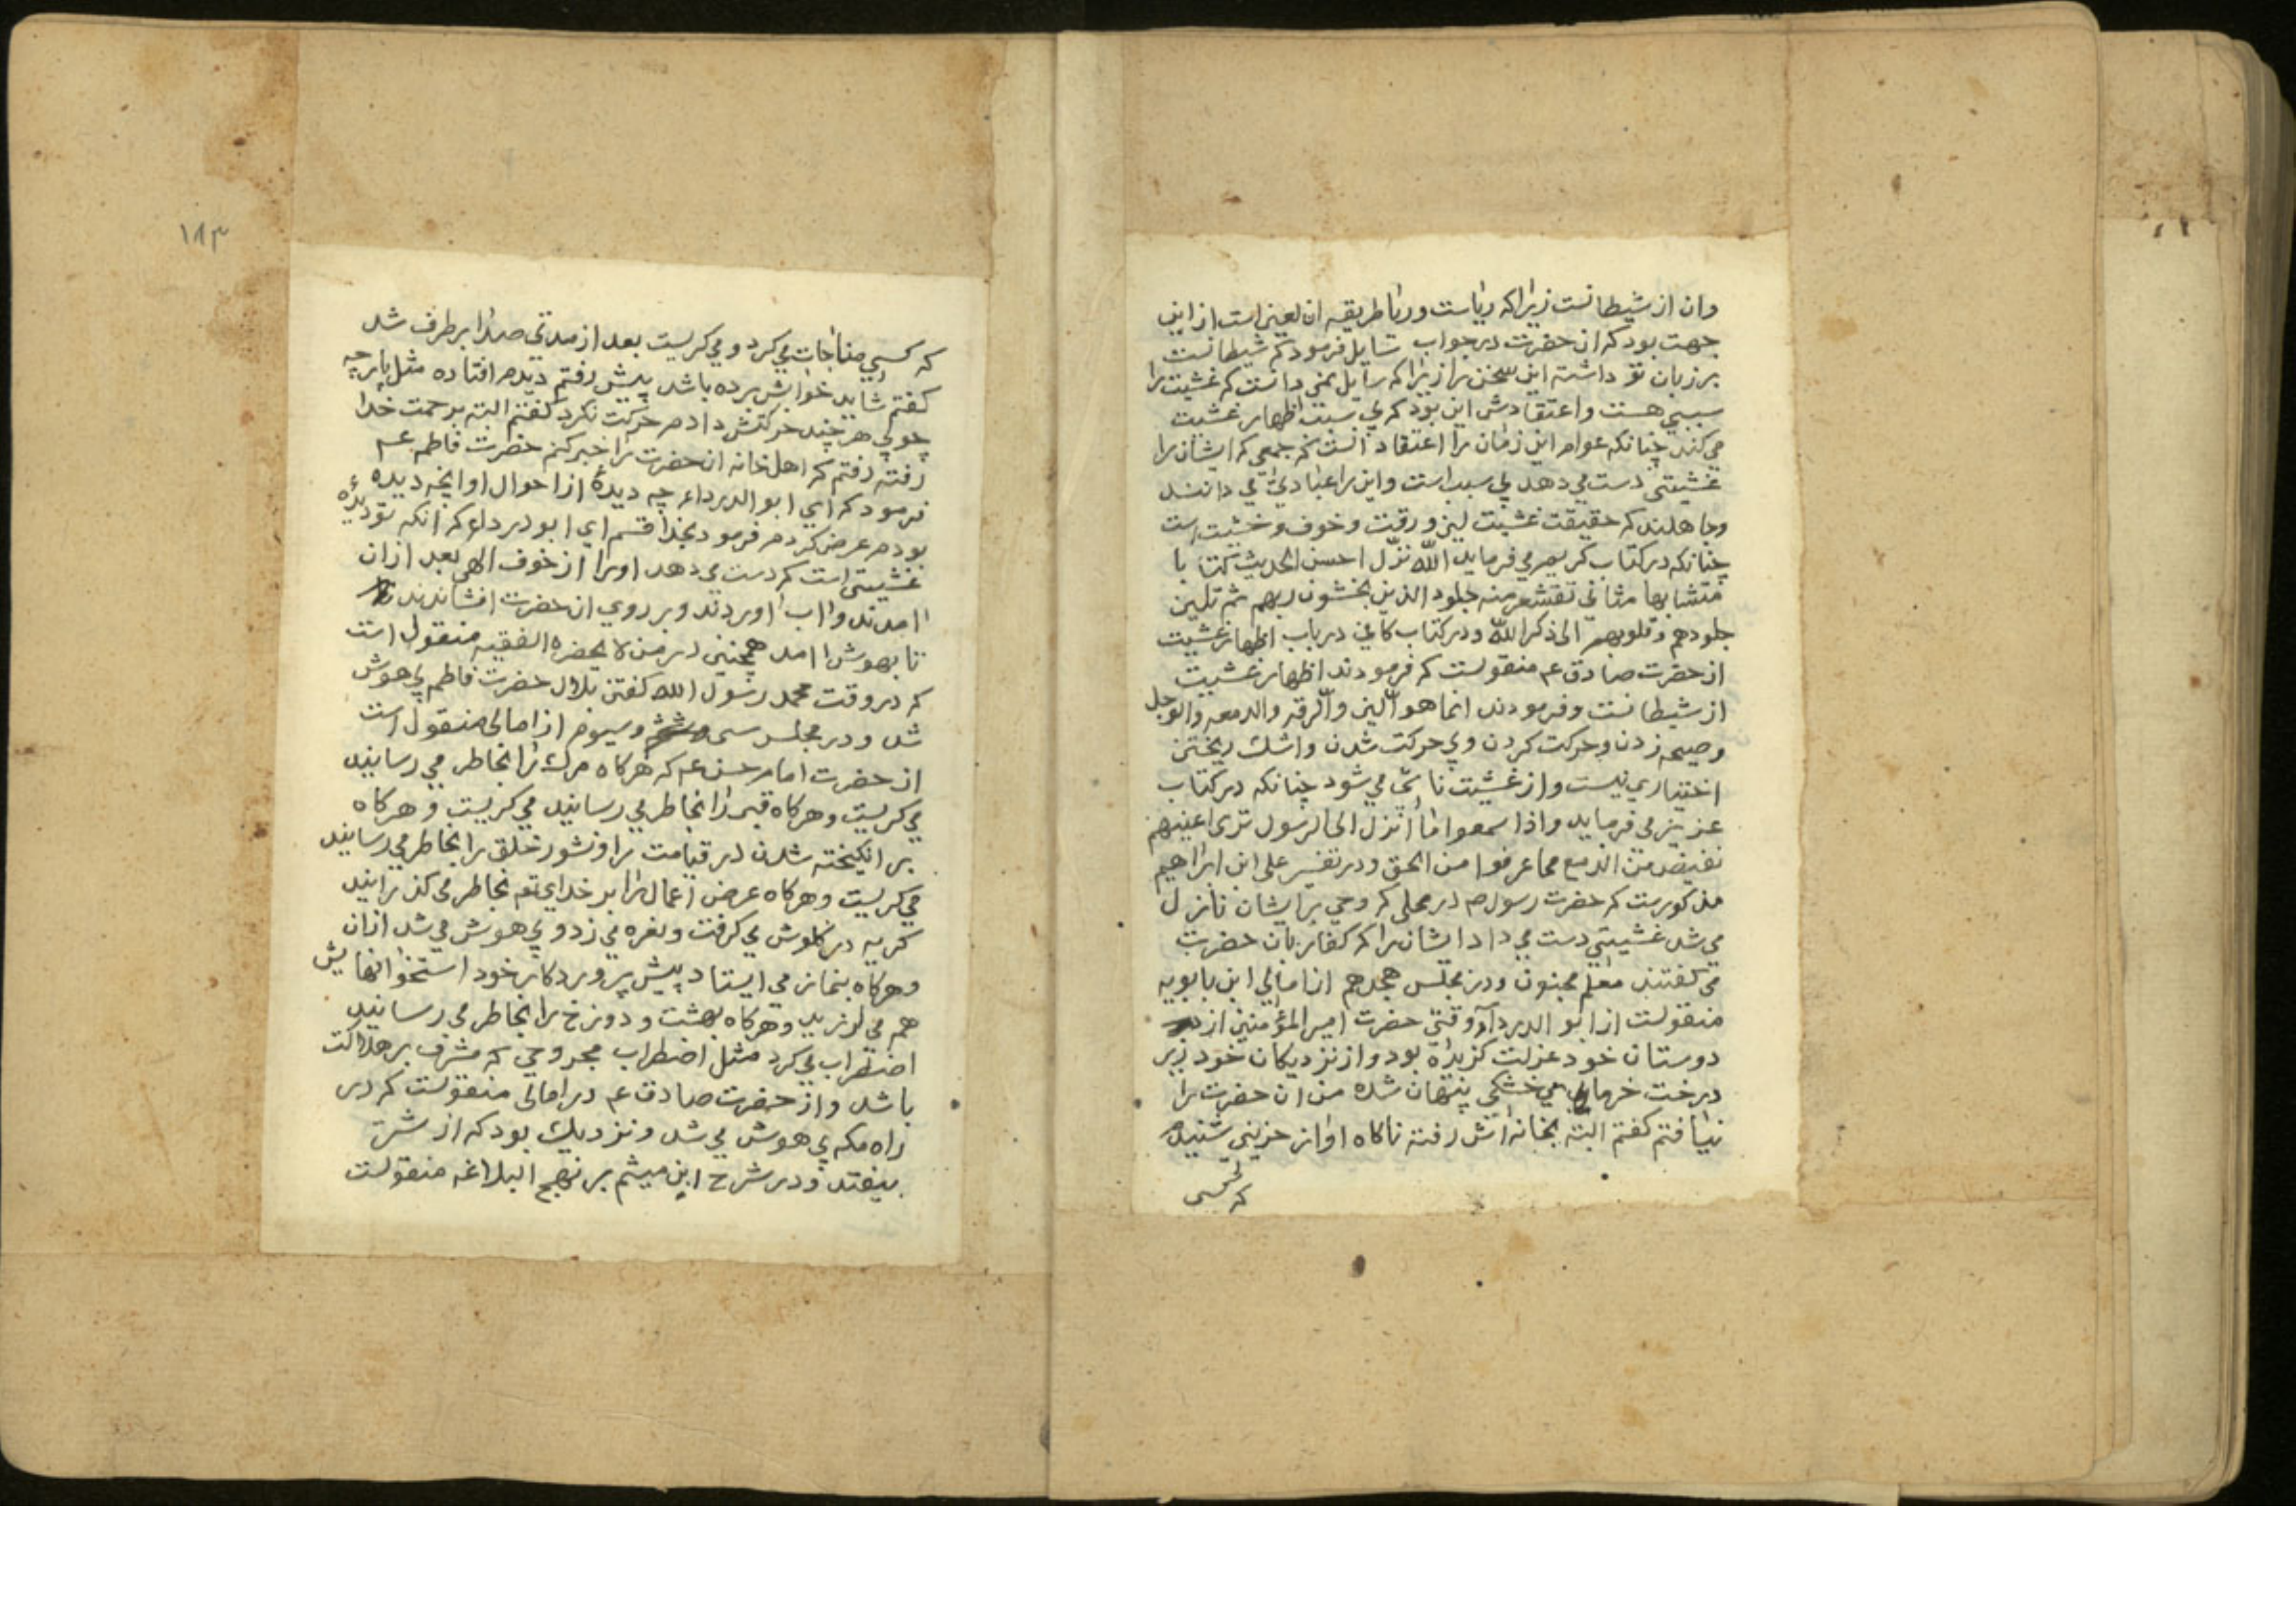 وان از شیطانست زیراکه ریاست وریا طریقه ان لعین است از این
جهت بود که ان حضرت در جواب سایل فرمود که شیطانست
بر زبان تو داشته این سخن را زیراکه سایل نمی دانست که غشیت را
سببی هست واعتقادش این بود که بی سبب اظهار غشیت
می کند چنانکه عوام این زمان را اعتقاد انست که جمعی که ایشان را
غشیتی دست می دهد بی سبب است واین را عبادی می دانند
وجاهلند که حقیقت غشیت لین ورقت وخوف وخشیت است
چنانکه در کتاب کریم می فرماید الله نزّل احسن الحدیث کتابا
متشابها مثانی تقشعر منه جلود الذین یخشون ربهم ثم تلین
جلودهم وقلوبهم الی ذکر الله ودر کتاب کافی در باب اظهار غشیت
از حضرت صادق ع م منقولست که فرمودند اظهار غشیت
از شیطانست وفرمودند انما هو الّلین والّرقه والدمعه والوجل
وصیحه زدن وحرکت کردن وبی حرکت شدن واشک ریختن
اختیاری نیست واز غشیت ناشی می شود چنانکه در کتاب
عزیز می فرماید واذا سمعوا ما انزل الی الرسول تری اعینهم
تفیض من الدمع مما عرفوا من الحق ودر تفسیر علی ابن ابراهیم
مذکورست که حضرت رسول ص در محلی که وحی بر ایشان نازل
می شد غشیتی دست می داد ایشان را که کفار بان حضرت
می کفتند معلم مجنون ودر مجلس هجدهم از امالی ابن بابویه
منقولست از ابو الدرداء وقتی حضرت امیر المؤمنین از
دوستان خود عزلت کزیده بود واز نزدیکان خود زیر
درخت خرمای خشکی پنهان شده من ان حضرت را
نیافتم کفتم البته بخانه اش رفته ناکاه اواز حزینی شنیدم
که کسی
۱۸۳
که کسی مناجات می کرد و می کریست بعد از مدتی صدا بر طرف شد
کفتم شاید خوابش برده باشد پیش رفتم دیدم افتاده مثل پارچه
چوبی هر چند حرکتش دادم حرکت نکرد کفتم البته برحمت خدا
رفته رفتم که اهل خانه ان حضرت را خبر کنم حضرت فاطمه ع م
فرمود که ای ابو الدرداء چه دیدهٔ از احوال او انچه دیده
بودم عرض کردم فرمود بخدا قسم ای ابو درداء که انکه تو دیدهٔ
غشیتی است که دست می دهد اورا از خوف الهی بعد ازان
امدند واب اوردند وبر روی ان حضرت افشاندند
تا بهوش امد همچنین در من لا یحضره الفقیه منقول است
که در وقت محمد رسول الله کفتن بلال حضرت فاطمه بی هوش
شد و در مجلس سی وسیوم از امالی منقول است
از حضرت امام حسن ع م که هرکاه مرک را بخاطر می رسانید
می کریست وهرکاه قبر را بخاطر می رسانید می کریست وهرکاه
بر انکیخته شدن در قیامت را ونشور خلق را بخاطر می رسانید
می کریست وهرکاه عرض اعمال را بر خدای تعه بخاطر می کذرانید
کریه در کلوش می کرفت ونعره می زد وبی هوش می شد ازان
وهرکاه بنماز می ایستاد پیش پروردکار خود استخوانهایش
هم می لرزید وهرکاه بهشت و دوزخ را بخاطر می رسانید
اضطراب می کرد مثل اضطراب مجروحی که مشرف بر هلاکت
باشد واز حضرت صادق ع م در امالی منقولست که در
راه مکه بی هوش می شد ونزدیک بود که از شتر
بیفتد ودر شرح ابن میثم بر نهج البلاغه منقولست